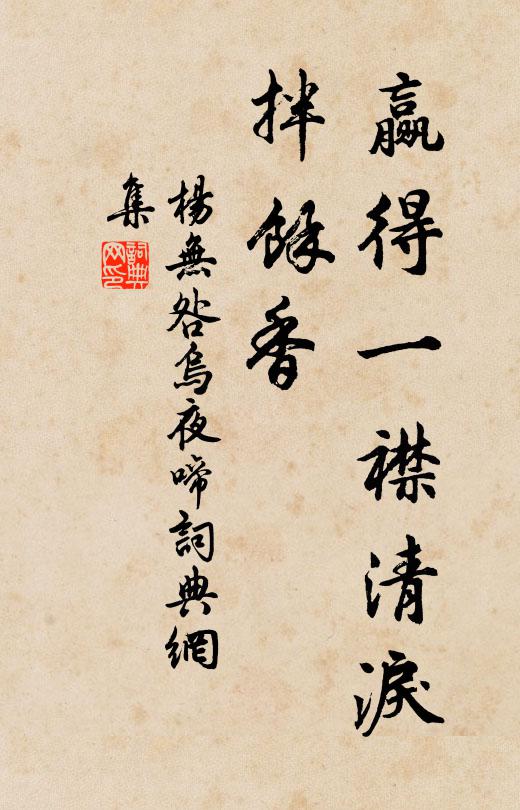 贏得一襟清淚
拌餘香
楊無咎烏夜啼詞典網
集
詞典網印